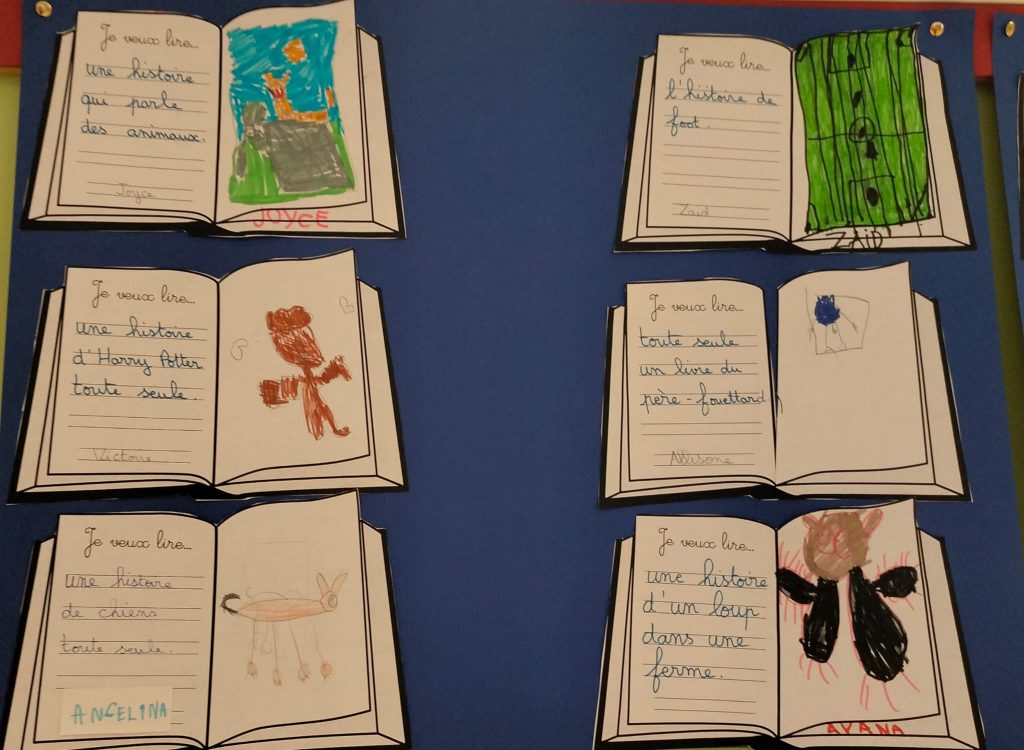 Je veux lire...
une histoire
qui parle
des animaux.
Joyce
JOYCE
Je veux lire...
l'histoire de
foot.
Zaid
ZAID
Je veux lire...
une histoire
d'Harry Potter
toute seule.
Victoire
Je veux lire...
toute seule
un livre du
père-fouettard.
Allisone
Je veux lire...
une histoire
de chiens
toute seule.
ANGELINA
Je veux lire...
une histoire
d'un loup
dans une
ferme.
AYANA